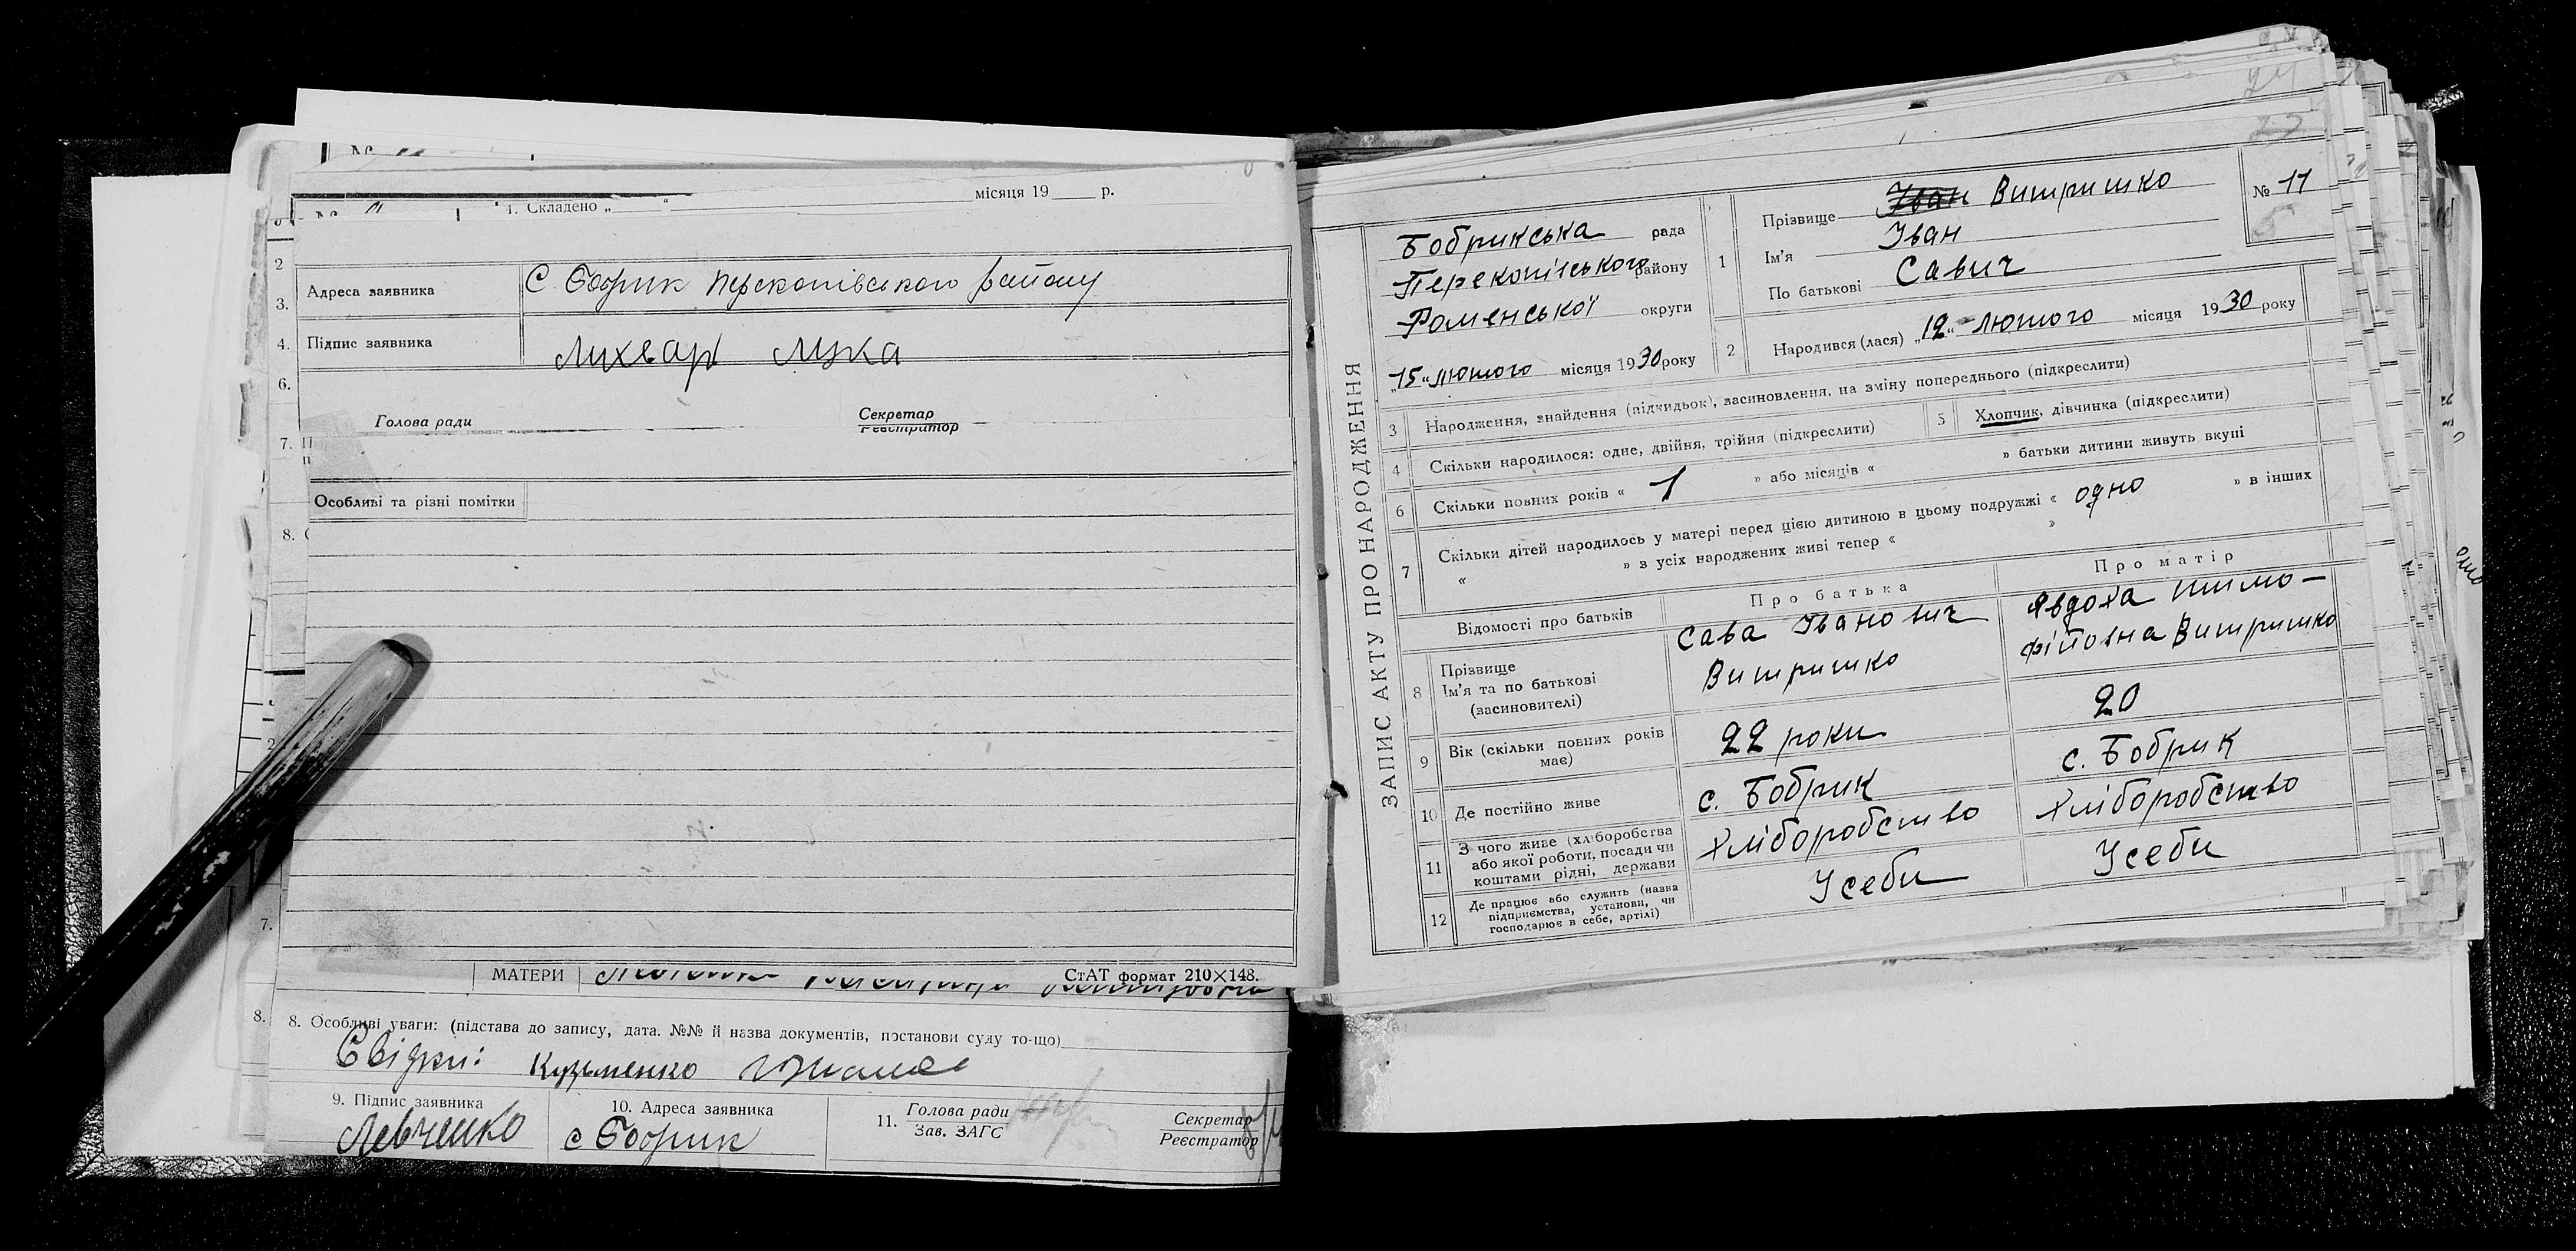 місяця 19 р.
1. Складено „ “
2
3.
4.
6.
7.
8.
Адреса заявника С. Бобрик Перекопівського району
Підпис заявника Лихвар Лука
Голова ради Секретар
Реєстратор
Особливі та різні помітки
7.
МАТЕРИ
СтАТ формат 210×148.
8. 8. Особливі уваги: (підстава до запису, дата. №№ й назва документів, постанови суду то-що)
Свідки: Кузьменко
9. Підпис заявника 10. Адреса заявника 11. Голова ради Секретар
Зав. ЗАГС Реєстратор
Левченко с Бобрик
ЗАПИС АКТУ ПРО НАРОДЖЕННЯ
Бобрикська рада
Перекопівського району
Роменської округи
„15“ лютого місяця 1930 року
1 Прізвище Іван Витришко
Ім'я Іван
По батькові Савич
№ 11
2 Народився (лася) „12“ лютого місяця 1930 року
3 Народження, знайдення (підкидьок), засиновлення, на зміну попереднього (підкреслити)
4 Скільки народилося: одне, двійня, трійня (підкреслити) 5 Хлопчик, дівчинка (підкреслити)
6 Скільки повних років « 1 » або місяців « » батьки дитини живуть вкупі
7 Скільки дітей народилось у матері перед цією дитиною в цьому подружжі « одно » в інших
« » з усіх народжених живі тепер « »
Відомості про батьків Про батька Про матір
8 Прізвище
Ім'я та по батькові
(засиновителі)
Сава Іванович
Витришко
Явдоха Тимо-
фіївна Витришко
9 Вік (скільки повних років
має)
22 роки 20
10 Де постійно живе с. Бобрик с. Бобрик
11 З чого живе (хліборобства
або якої роботи, посади чи
коштами рідні, держави
Хліборобство Хліборобство
12 Де працює або служить (назва
підприємства, установи, чи
господарює в себе, артілі)
Усеби Усеби